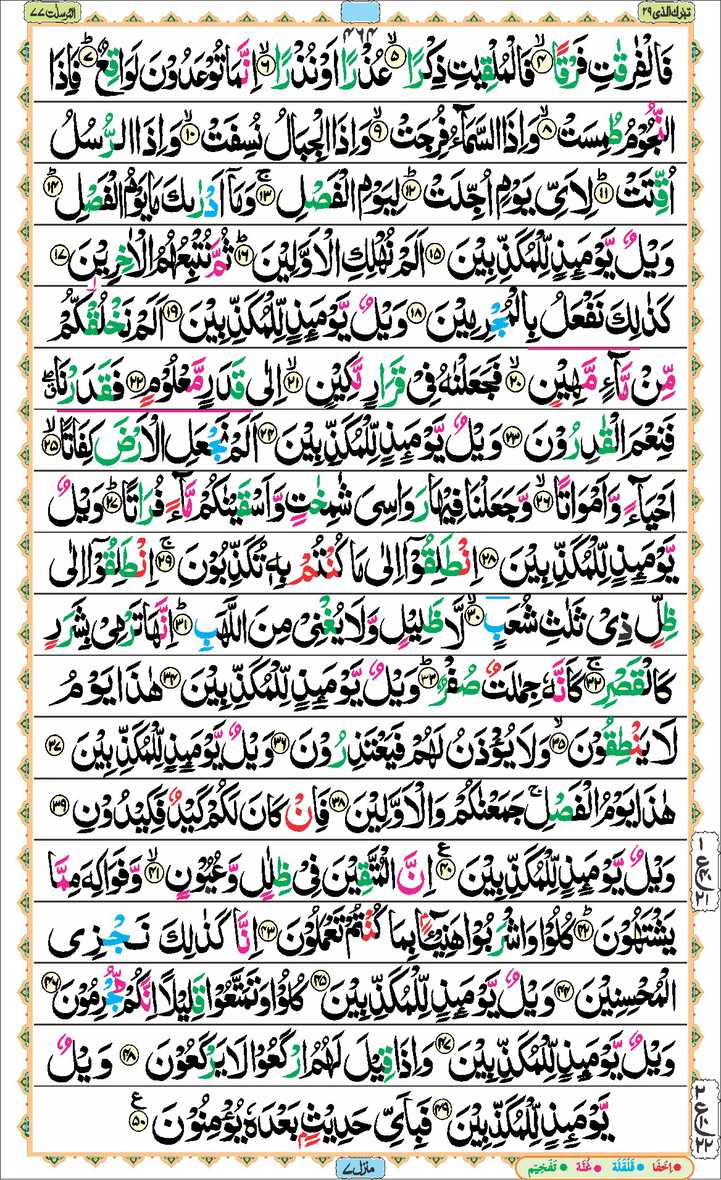 تبٰرك الذی ۲۹
المرسلٰت ۷۷
۴۶۴
فَالْفٰرِقٰتِ فَرْقًا ۙ﴿۴﴾ فَالْمُلْقِيٰتِ ذِكْرًا ۙ﴿۵﴾ عُذْرًا اَوْ نُذْرًا ۙ﴿۶﴾ اِنَّمَا تُوْعَدُوْنَ لَوَاقِعٌ ؕ﴿۷﴾ فَاِذَا
النُّجُوْمُ طُمِسَتْ ۙ﴿۸﴾ وَاِذَا السَّمَآءُ فُرِجَتْ ۙ﴿۹﴾ وَاِذَا الْجِبَالُ نُسِفَتْ ۙ﴿۱۰﴾ وَاِذَا الرُّسُلُ
اُقِّتَتْ ؕ﴿۱۱﴾ لِاَيِّ يَوْمٍ اُجِّلَتْ ؕ﴿۱۲﴾ لِيَوْمِ الْفَصْلِ ۚ﴿۱۳﴾ وَمَآ اَدْرٰىكَ مَا يَوْمُ الْفَصْلِ ؕ﴿۱۴﴾
وَيْلٌ يَّوْمَئِذٍ لِّلْمُكَذِّبِيْنَ ﴿۱۵﴾ اَلَمْ نُهْلِكِ الْاَوَّلِيْنَ ؕ﴿۱۶﴾ ثُمَّ نُتْبِعُهُمُ الْاٰخِرِيْنَ ﴿۱۷﴾
كَذٰلِكَ نَفْعَلُ بِالْمُجْرِمِيْنَ ﴿۱۸﴾ وَيْلٌ يَّوْمَئِذٍ لِّلْمُكَذِّبِيْنَ ﴿۱۹﴾ اَلَمْ نَخْلُقْكُّمْ
مِّنْ مَّآءٍ مَّهِيْنٍ ۙ﴿۲۰﴾ فَجَعَلْنٰهُ فِيْ قَرَارٍ مَّكِيْنٍ ۙ﴿۲۱﴾ اِلٰى قَدَرٍ مَّعْلُوْمٍ ۙ﴿۲۲﴾ فَقَدَرْنَا ۖۗ
فَنِعْمَ الْقٰدِرُوْنَ ﴿۲۳﴾ وَيْلٌ يَّوْمَئِذٍ لِّلْمُكَذِّبِيْنَ ﴿۲۴﴾ اَلَمْ نَجْعَلِ الْاَرْضَ كِفَاتًا ۙ﴿۲۵﴾
اَحْيَآءً وَّاَمْوَاتًا ۙ﴿۲۶﴾ وَّجَعَلْنَا فِيْهَا رَوَاسِيَ شٰمِخٰتٍ وَّاَسْقَيْنٰكُمْ مَّآءً فُرَاتًا ؕ﴿۲۷﴾ وَيْلٌ
يَّوْمَئِذٍ لِّلْمُكَذِّبِيْنَ ﴿۲۸﴾ اِنْطَلِقُوْۤا اِلٰى مَا كُنْتُمْ بِهٖ تُكَذِّبُوْنَ ۚ﴿۲۹﴾ اِنْطَلِقُوْۤا اِلٰى
ظِلٍّ ذِيْ ثَلٰثِ شُعَبٍ ۙ﴿۳۰﴾ لَّا ظَلِيْلٍ وَّلَا يُغْنِيْ مِنَ اللَّهَبِ ؕ﴿۳۱﴾ اِنَّهَا تَرْمِيْ بِشَرَرٍ
كَالْقَصْرِ ۚ﴿۳۲﴾ كَاَنَّهٗ جِمٰلَتٌ صُفْرٌ ؕ﴿۳۳﴾ وَيْلٌ يَّوْمَئِذٍ لِّلْمُكَذِّبِيْنَ ﴿۳۴﴾ هٰذَا يَوْمُ
لَا يَنْطِقُوْنَ ۙ﴿۳۵﴾ وَلَا يُؤْذَنُ لَهُمْ فَيَعْتَذِرُوْنَ ﴿۳۶﴾ وَيْلٌ يَّوْمَئِذٍ لِّلْمُكَذِّبِيْنَ ﴿۳۷﴾
هٰذَا يَوْمُ الْفَصْلِ ۚ جَمَعْنٰكُمْ وَالْاَوَّلِيْنَ ﴿۳۸﴾ فَاِنْ كَانَ لَكُمْ كَيْدٌ فَكِيْدُوْنِ ﴿۳۹﴾
وَيْلٌ يَّوْمَئِذٍ لِّلْمُكَذِّبِيْنَ ﴿۴۰﴾ ع اِنَّ الْمُتَّقِيْنَ فِيْ ظِلٰلٍ وَّعُيُوْنٍ ۙ﴿۴۱﴾ وَّفَوَاكِهَ مِمَّا
يَشْتَهُوْنَ ؕ﴿۴۲﴾ كُلُوْا وَاشْرَبُوْا هَنِيْٓئًۢا بِمَا كُنْتُمْ تَعْمَلُوْنَ ﴿۴۳﴾ اِنَّا كَذٰلِكَ نَجْزِي
الْمُحْسِنِيْنَ ﴿۴۴﴾ وَيْلٌ يَّوْمَئِذٍ لِّلْمُكَذِّبِيْنَ ﴿۴۵﴾ كُلُوْا وَتَمَتَّعُوْا قَلِيْلًا اِنَّكُمْ مُّجْرِمُوْنَ ﴿۴۶﴾
وَيْلٌ يَّوْمَئِذٍ لِّلْمُكَذِّبِيْنَ ﴿۴۷﴾ وَاِذَا قِيْلَ لَهُمُ ارْكَعُوْا لَا يَرْكَعُوْنَ ﴿۴۸﴾ وَيْلٌ
يَّوْمَئِذٍ لِّلْمُكَذِّبِيْنَ ﴿۴۹﴾ فَبِاَيِّ حَدِيْثٍۭ بَعْدَهٗ يُؤْمِنُوْنَ ﴿۵۰﴾ ع
منزل ۷
اِخْفَا قَلْقَلَة غُنَّة تَفْخِيْم